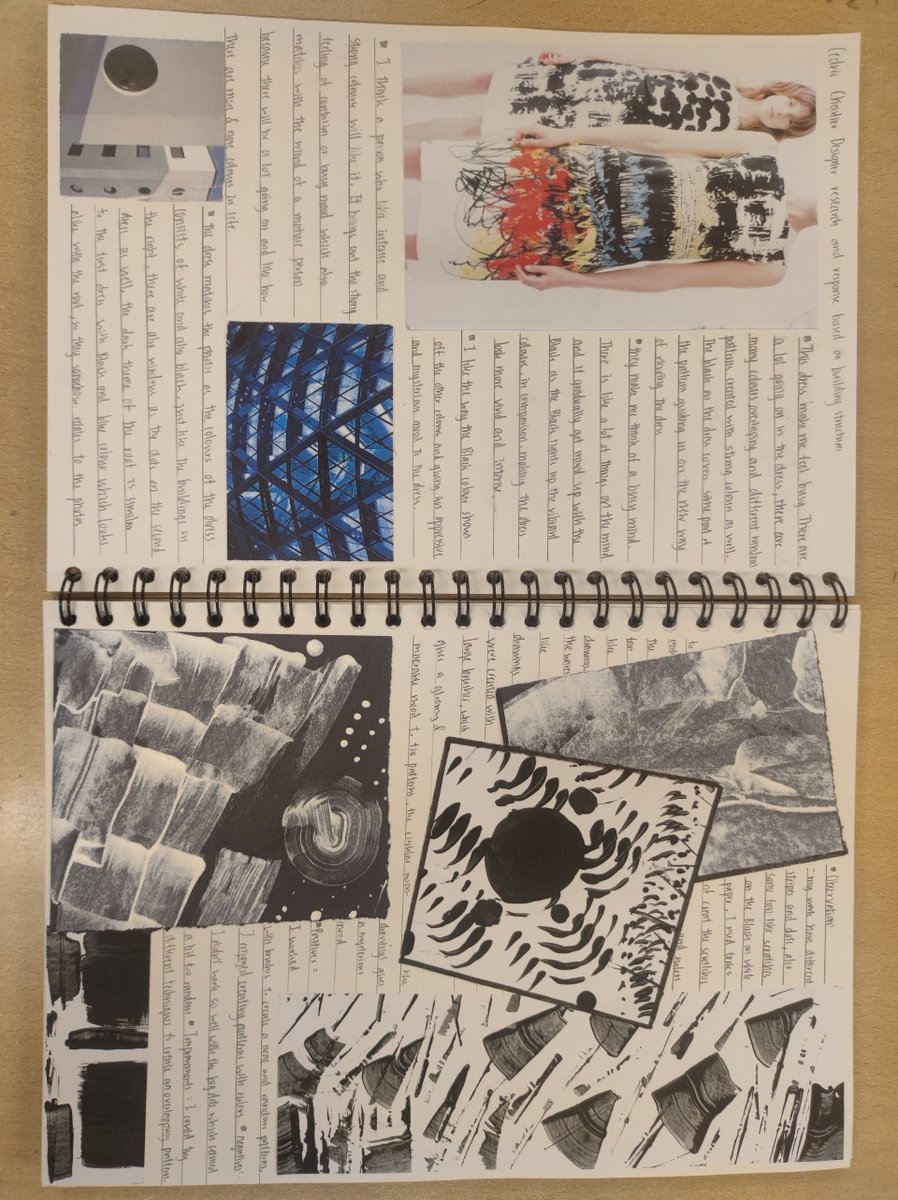 Cedric Charlier Designer research and response based on building structures
• This dress make me feel busy. There are
a lot going on in the dress, there are
many colours overlaping and different random
patterns created with strong colours as well.
The black on the dress covers some part of
the pattern guiding us on the new way
of viewing the dress
• they make me think of a busy mind
There is like a lot of things on the mind
and it gradually get mixed up with the
Black as the Black tights up the vibrant
colour in comparison making the dress
look more vivid and intense.
• I like the way the Black colour shows
off the other colours and giving an oppressive
and mysterious mood to the dress.
• I think a person who likes intense and
strong colours will like it. It brings out the strong
feeling of confusion or busy mood which also
matches with the mood of a mature person
because there will be a lot going on and like how
there are more & more colours in life
• the dress matches the photos as the colours of the dress
consists of white and also black, just like the buildings on
the right, there are also windows as the dots on the second
dress as well. the dark theme of the roof is similar
to the first dress with Black and blue colour which looks
alike with the roof, so they somehow relates to the photos
• Observation:
- my work have different
stripes and dots, also
some tore like scratches
on the Black on white
paper, I used forks
and rulers
of creat the scratches
to
the
for
like
drawing
the waves
like
drawings
were created with
large brushes, which
gives a gloomy &
miserable mood to the patterns, the circular moon-
drawings gives
a mysterious
mood
• Positives =
I mixed
with brushes to create a new and random patterns
I enjoyed creating patterns with rulers • negatives:
I didn't work so well with the big dots which seemed
a bit too random • Improvements = I could try
different techniques to create an overlapping pattern.